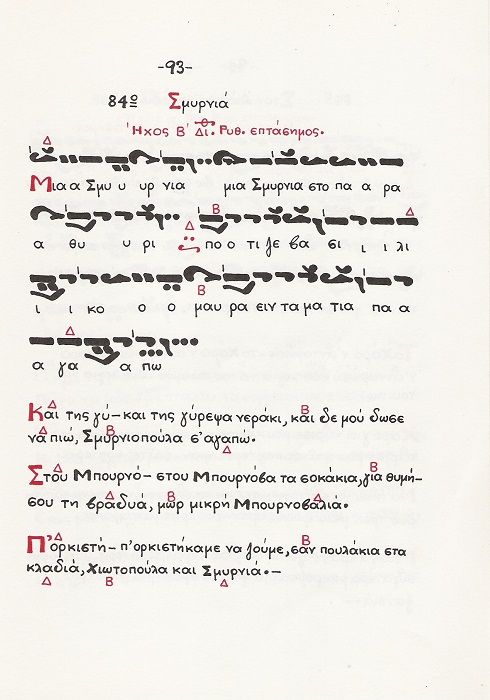 -93-
84ο Σμυρνιά
Ἦχος Β' Δι. Ρυθ. επτάσημος.
Δ
Μια α Σμυ υ υρ νια μια Σμυρνια στο πα α ρα
Β Δ
α θυ υ υρι Δ πο ο τι ζε βα σι ι ι λι
ι ι κο ο ο Β μαυ ρα ειν τα μα τια πα α
Δ
α γα α πω
Δ Β
Και της γύ- και της γύρεψα νεράκι, και δε μού δωσε
Δ Β
να πιώ, Σμυρνιοπούλα σ' αγαπώ.
Δ
Δ Β
Στου Μπουρνό- στου Μπουρνόβα τα σοκάκια, για θυμή-
Δ Β Δ
σου τη βραδυά, μωρ μικρή Μπουρνοβαλιά.
Δ Β
Π'ορκιστή- π'ορκιστήκαμε να ζούμε, σαν πουλάκια στα
κλαδιά, Χιωτοπούλα και Σμυρνιά.-
Δ Β Δ